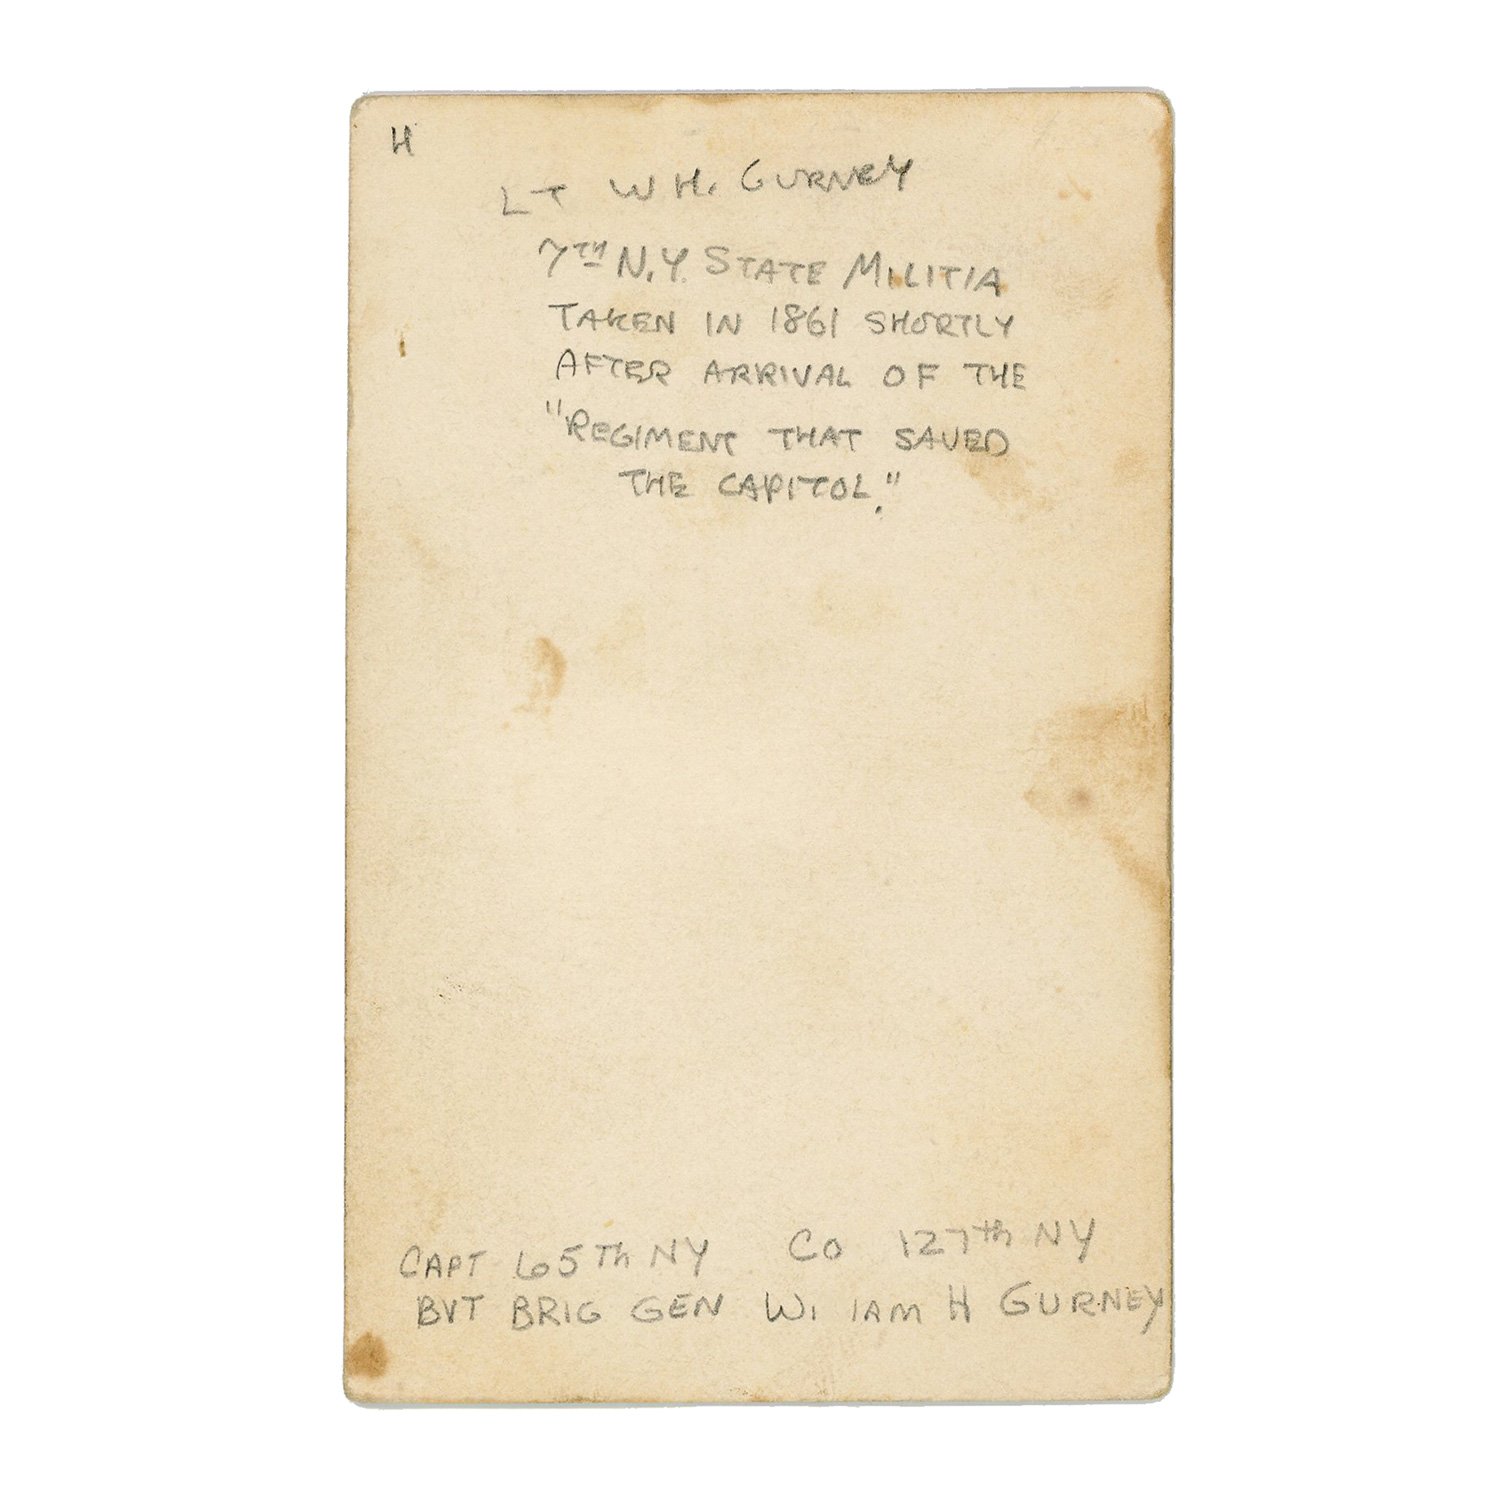 H
LT W H. GURNEY
7TH N.Y. STATE MILITIA
TAKEN IN 1861 SHORTLY
AFTER ARRIVAL OF THE
"REGIMENT THAT SAVED
THE CAPITOL."
CAPT 65Th NY Co 127th NY
BVT BRIG GEN Wi iAM H GURNEY